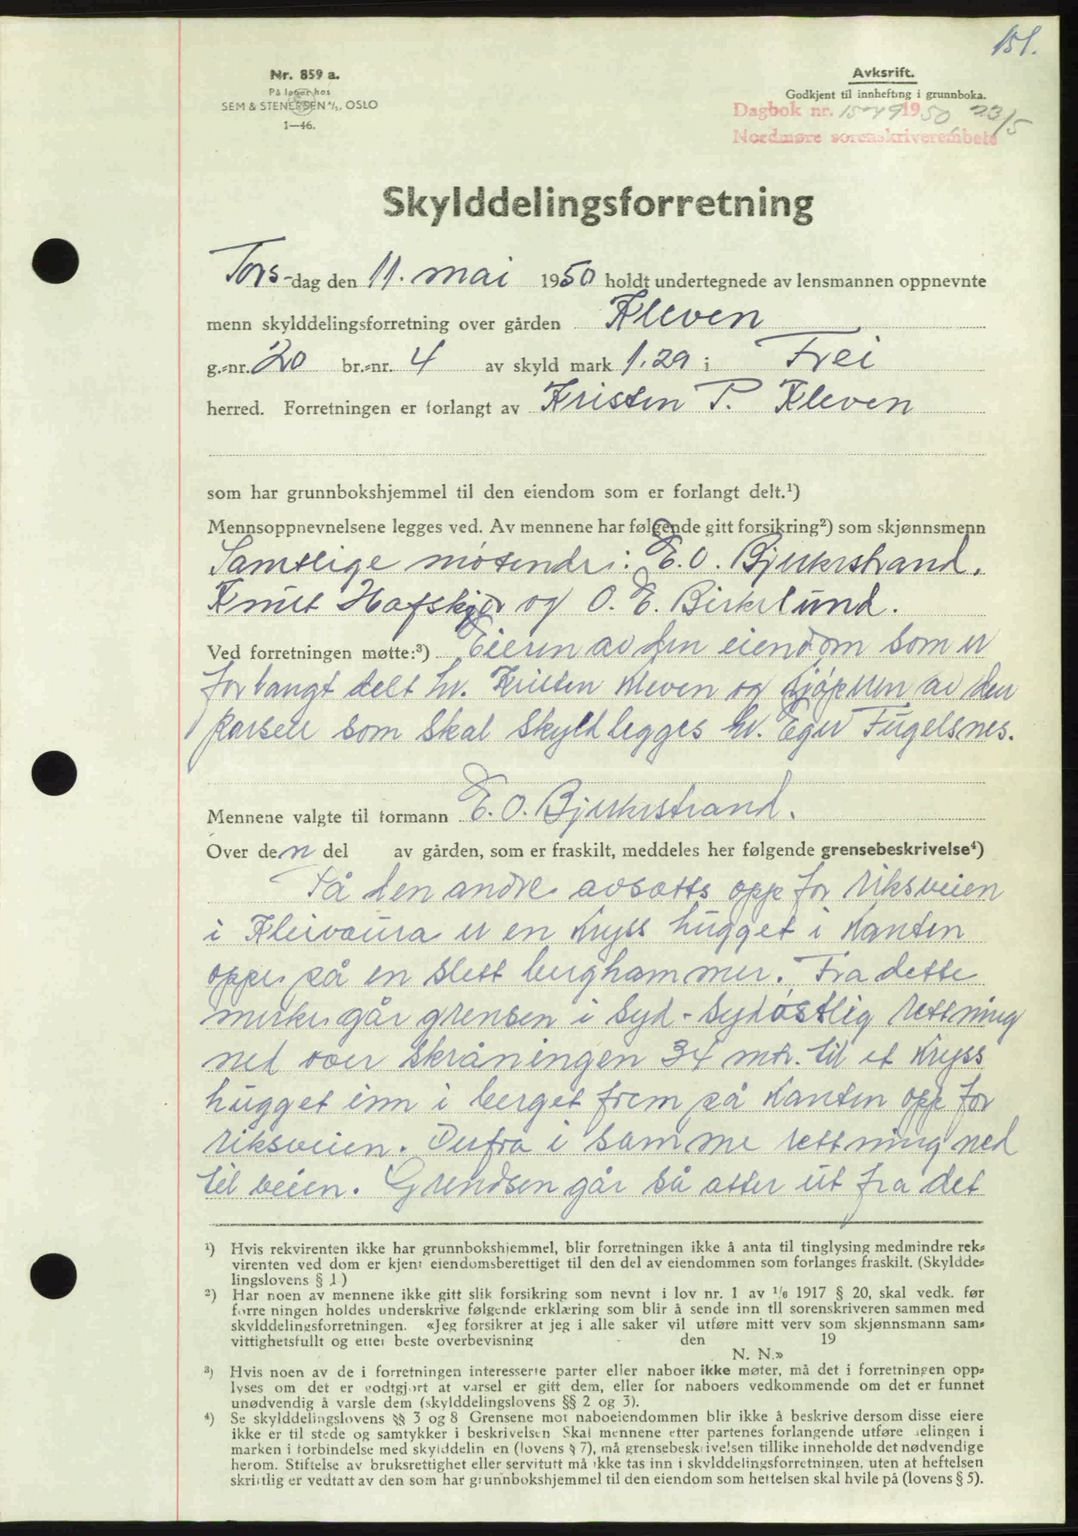 151.
Nr. 859 a.
På lager hos
SEM & STENERSEN A/S, OSLO
1—46.
Avksrift.
Godkjent til innhefting i grunnboka.
Dagbok nr. 1549 1950 23/5
Nordmøre sorenskriverembete
Skylddelingsforretning
Tors-dag den 11. mai 1950 holdt undertegnede av lensmannen oppnevnte
menn skylddelingsforretning over gården Kleven
g.-nr. 20 br.-nr. 4 av skyld mark 1.29 i Frei
herred. Forretningen er forlangt av Kristen P. Kleven
som har grunnbokshjemmel til den eiendom som er forlangt delt.¹)
Mennsoppnevnelsene legges ved. Av mennene har følgende gitt forsikring²) som skjønnsmenn
Samtlige møtende: E. O. Bjerkestrand.
Knut Hafskjær og O. E. Birkelund.
Ved forretningen møtte:³) Eieren av den eiendom som er
forlangt delt hr. Kristen Kleven og kjøperen av den
parsell som skal skyldlegges hr. Egil Fugelsnes.
Mennene valgte til formann E. O. Bjerkestrand.
Over den del av gården, som er fraskilt, meddeles her følgende grensebeskrivelse⁴)
På den andre avsatts opp for riksveien
i Kleivaura er en kryss hugget i kanten
oppe på en slett berghammer. Fra dette
merke går grensen i syd-sydøstlig rettning
ned over skråningen 34 mtr. til et kryss
hugget inn i berget frem på kanten opp for
riksveien. Derfra i samme rettning ned
til veien. Grendsen går så atter ut fra det
¹) Hvis rekvirenten ikke har grunnbokshjemmel, blir forretningen ikke å anta til tinglysing medmindre rek-
virenten ved dom er kjent eiendomsberettiget til den del av eiendommen som forlanges fraskilt. (Skyldde-
lingslovens § 1)
²) Har noen av mennene ikke gitt slik forsikring som nevnt i lov nr. 1 av 1/6 1917 § 20, skal vedk. før
forretningen holdes underskrive følgende erklæring som blir å sende inn til sorenskriveren sammen med
skylddelingsforretningen. «Jeg forsikrer at jeg i alle saker vil utføre mitt verv som skjønnsmann sam-
vittighetsfullt og etter beste overbevisning - den 19
N. N.»
³) Hvis noen av de i forretningen interesserte parter eller naboer ikke møter, må det i forretningen opp-
lyses om det er godtgjort at varsel er gitt dem, eller for naboers vedkommende om det er funnet
unødvendig å varsle dem (skylddelingslovens §§ 2 og 3).
⁴) Se skylddelingslovens §§ 3 og 8 Grensene mot naboeiendommen blir ikke å beskrive dersom disse eiere
ikke er til stede og samtykker i beskrivelsen Skal mennene etter partenes forlangende utføre delingen i
marken i forbindelse med skylddelingen (lovens § 7), må grensebeskrivelsen tillike inneholde det nødvendige
herom. Stiftelse av bruksrettighet eller servitutt må ikke tas inn i skylddelingsforretningen, uten at heftelsen
skriftlig er vedtatt av den som har grunnbokshjemmel til den eiendom som heftelsen skal hvile på (lovens § 5).